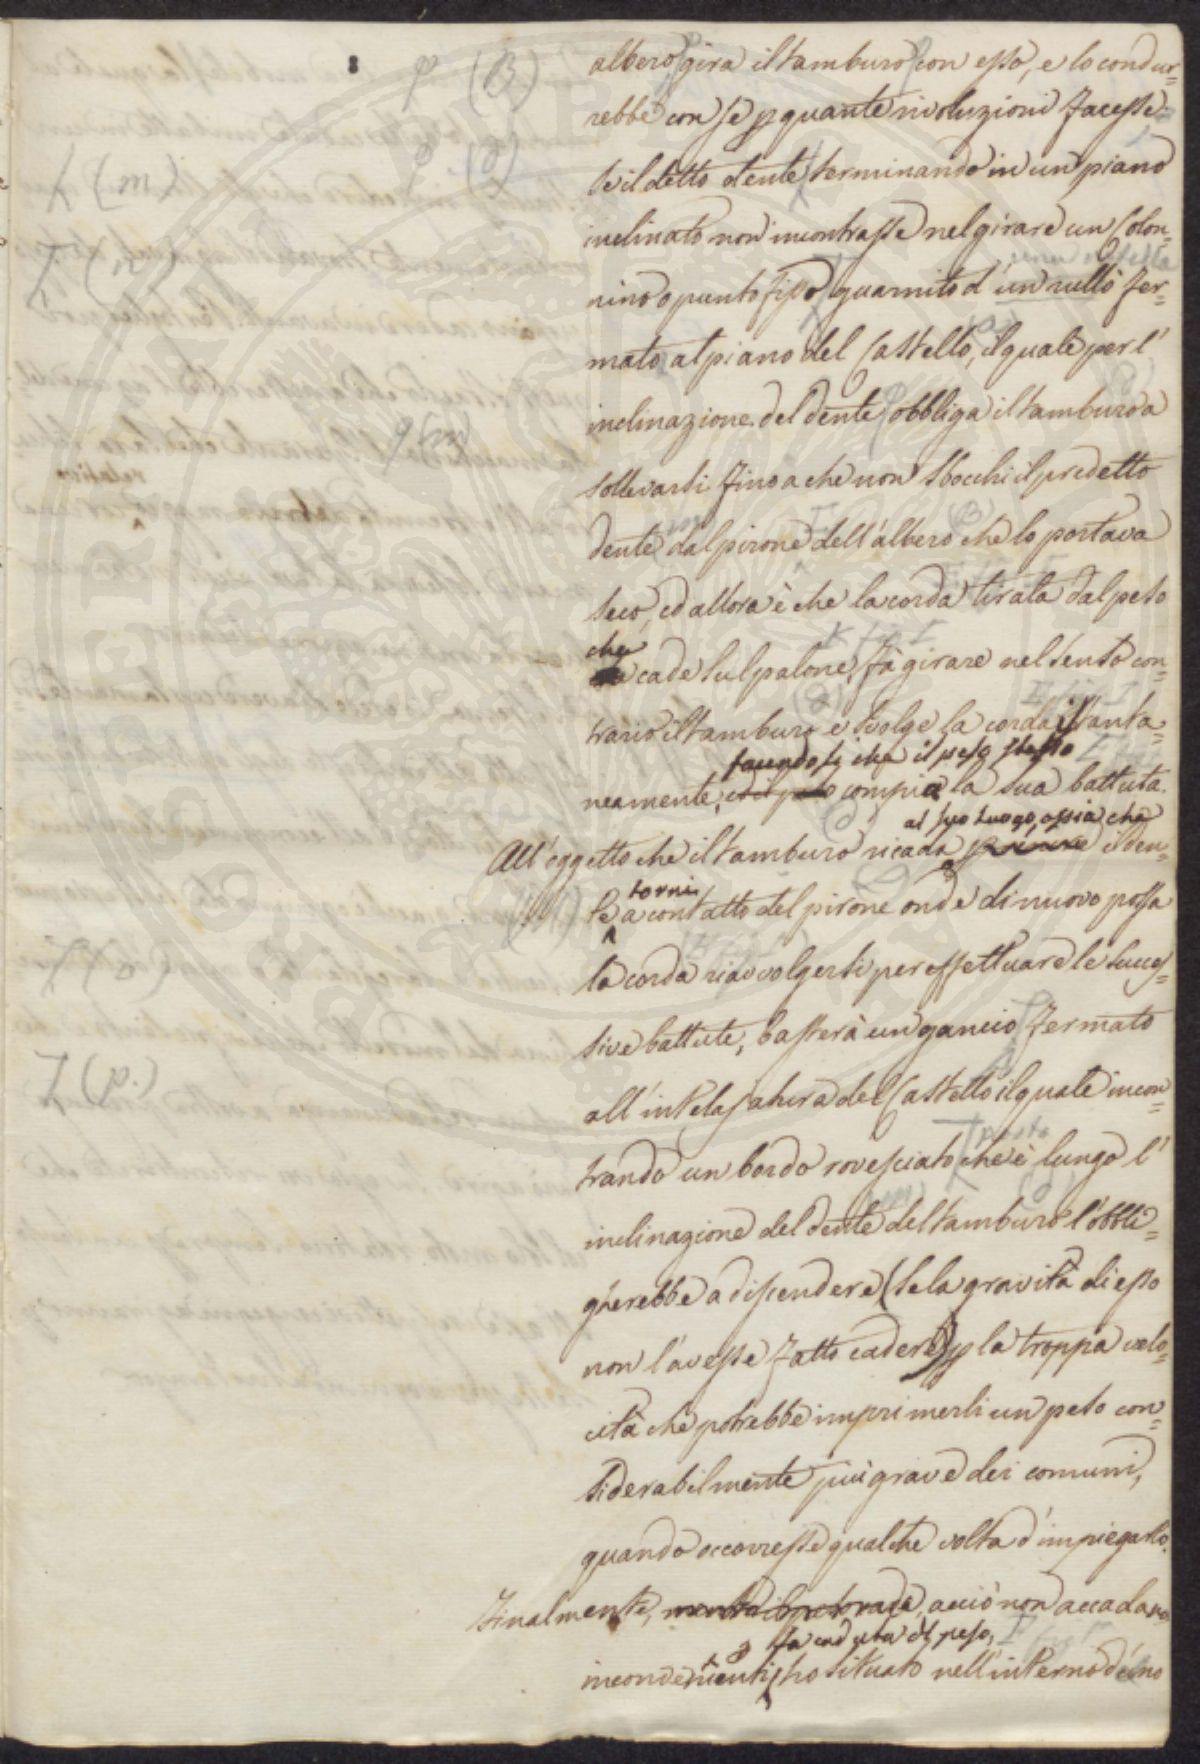 albero gira il tamburo con esso, e lo condur=
rebbe con se p quante rivoluzioni facesse
se il detto dente terminando in un piano
inclinato non incontrasse nel girare un Colon=
nino o punto fisso guarnito d'un rullo fer=
mato al piano del Castello, il quale per l'
inclinazione del dente obbliga il tamburo a
sollevarsi fino a che non sbocchi il predetto
dente dal pirone dell'albero che lo portava
seco, ed allora è che la corda tirata dal peso
che
cade sul palone, fà girare nel senso con=
trario il tamburo e svolge la corda istanta=
facendo si che il peso stesso
neamente, compia la sua battuta.
al suo luogo, ossia che
All'oggetto che il tamburo ricada il den=
torni
te a contatto del pirone onde di nuovo possa
la corda riavvolgersi per effettuare le succes=
sive battute, basterà un gancio fermato
all'intelajatura del Castello il quale incon=
posto
trando un bordo rovesciato che è lungo l'
inclinazione del dente del tamburo l'obbli=
gherebbe a discendere (se la gravità di esso
non l'avesse fatto cadere) p la troppa velo=
cità che potrebbe imprimerli un peso con=
siderabilmente più grave dei comuni,
quando occorresse qualche volta d'impiegarlo.
Finalmente, acciò non accadano
la caduta del peso,
inconvenienti ho situato nell'interno d'uno
8
φ (B)
φ (o)
K (m)
I (n)
φ (m
I (o)
I (p.)